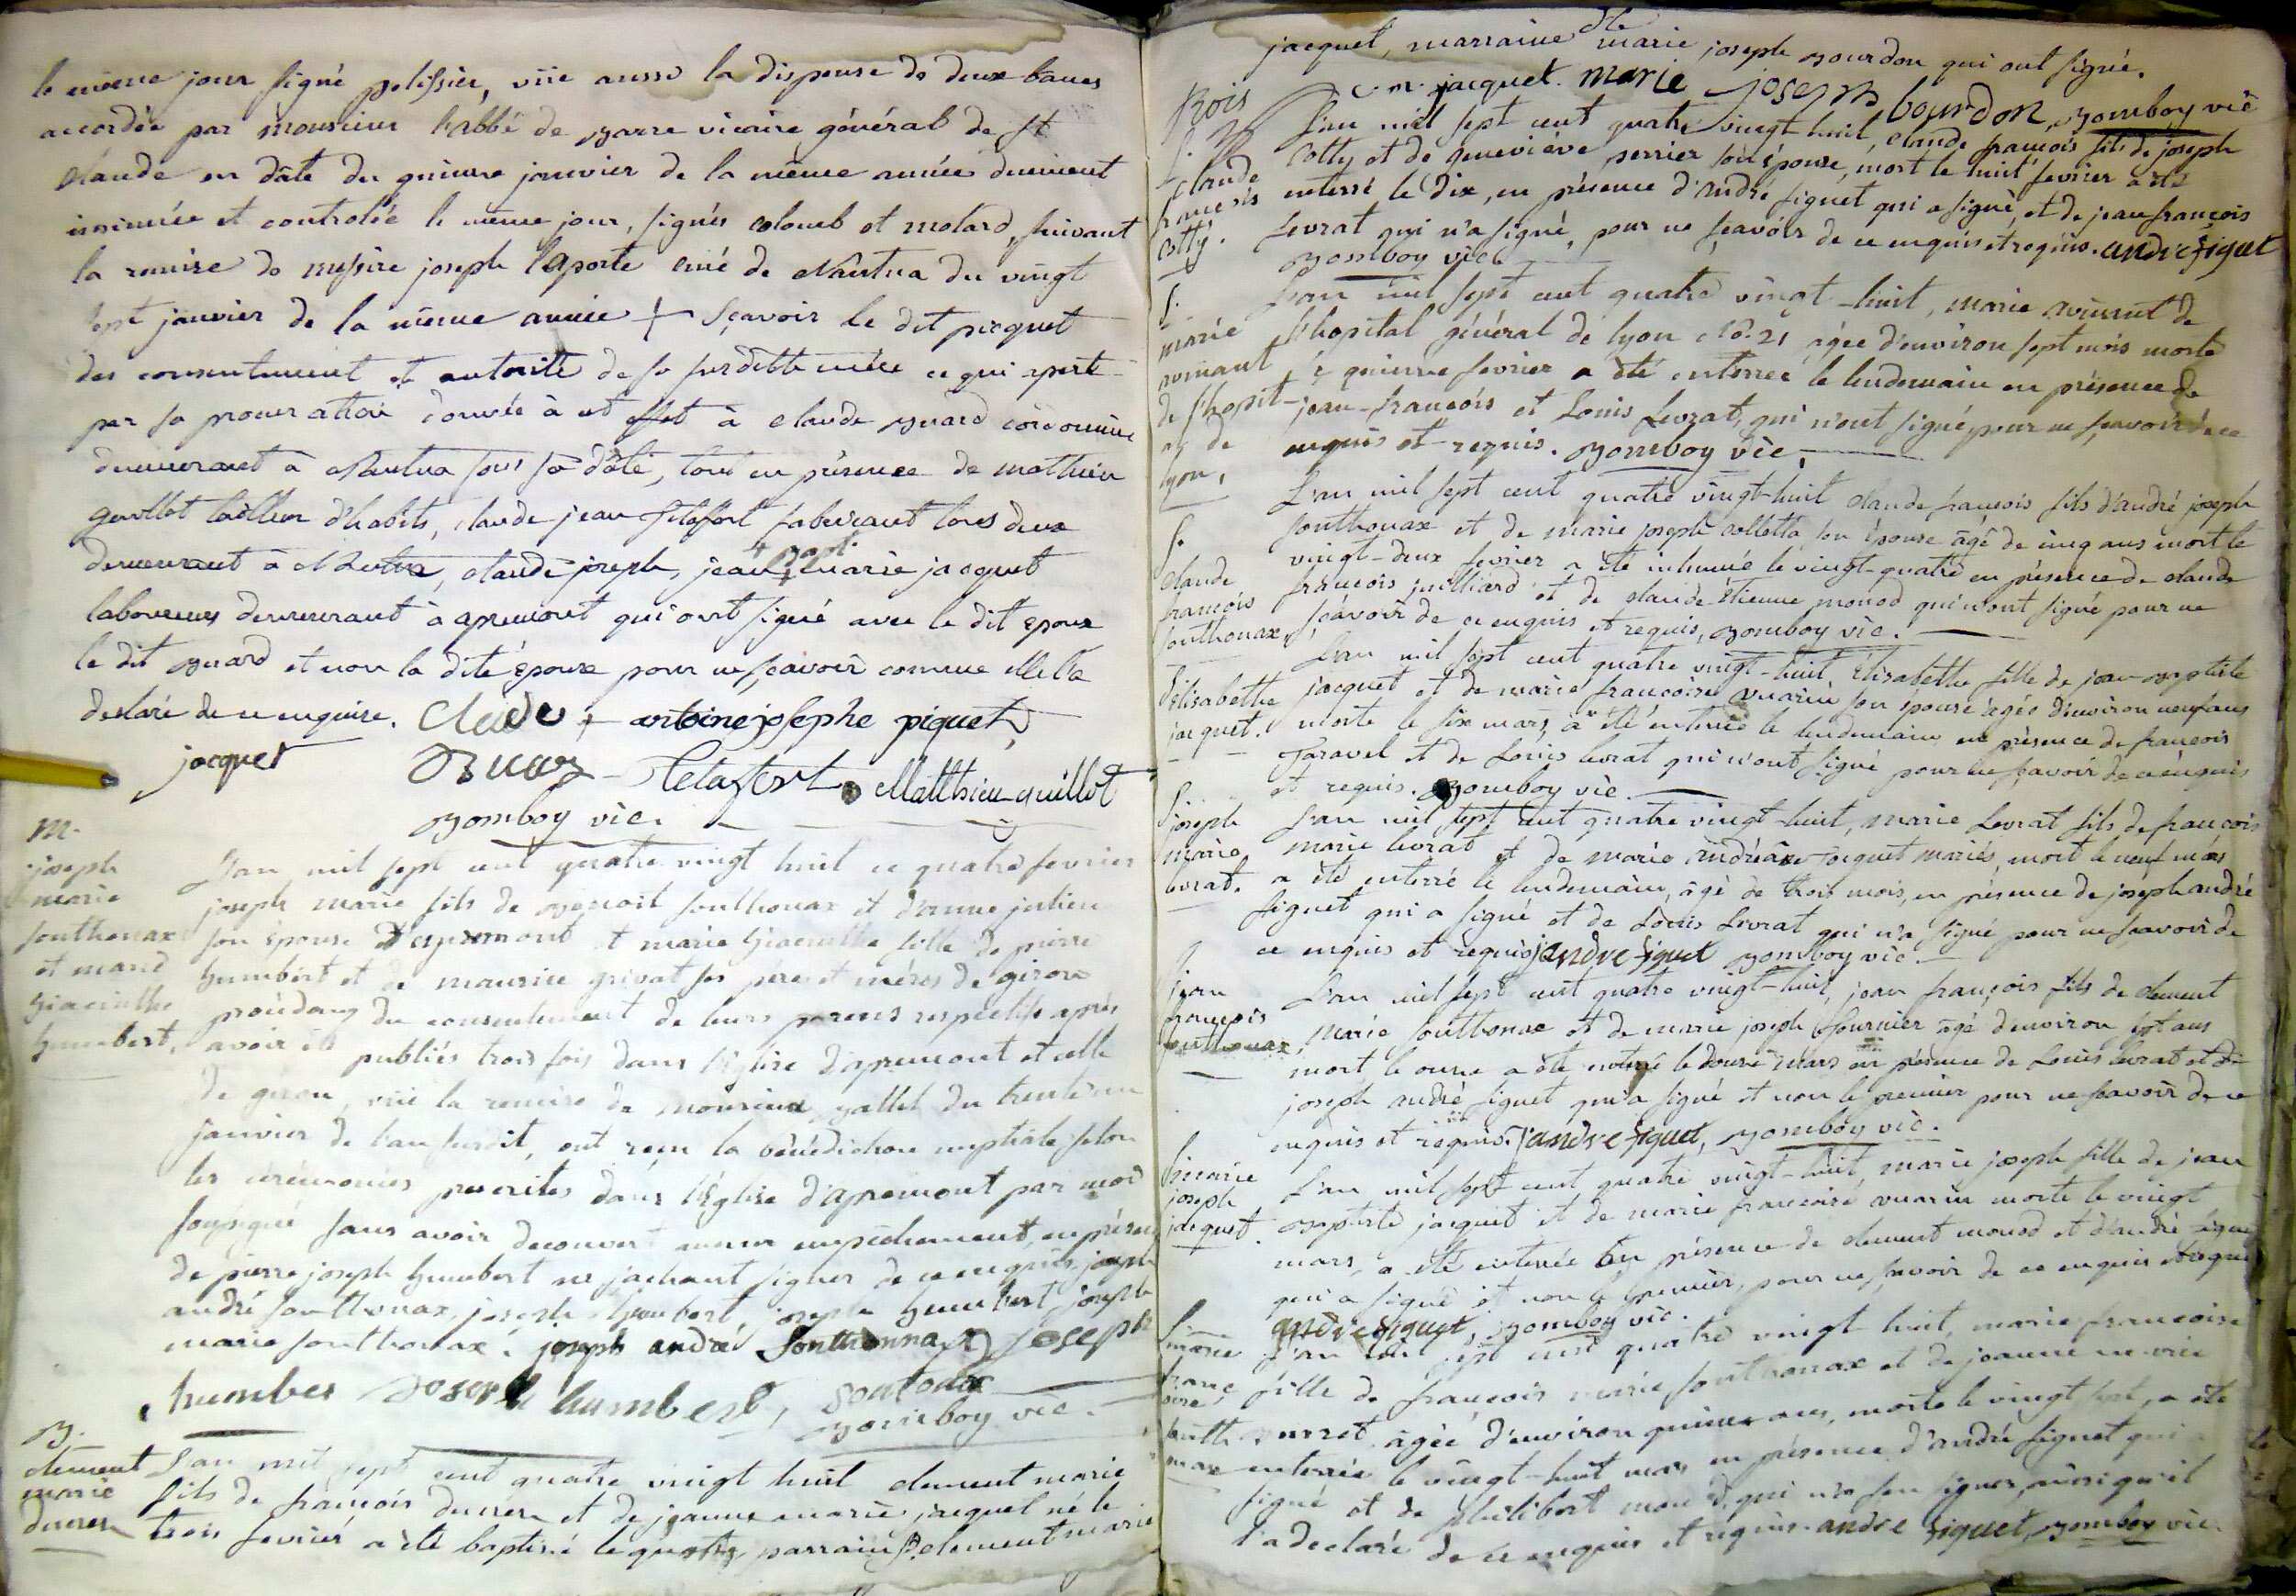 le même jour signé pelissier, vüe aussi la dispense de deux bancs
accordée par monsieur l'abbé de Barre vicaire général de St
claude en dâte du quinze janvier de la même année duement
insinuée et controlée le même jour, signés colomb et molard, suivant
la remise de messire joseph laporte curé de Nantua du vingt
sept janvier de la même année + sçavoir le dit picquet
des consentement et autorité de sa surditte mère ce qui apert
par sa procuration donnée à cet effet à claude Buard cordonnier
demeurant à Nantua sous sa dâte, tout en présence de mathieu
guillot tailleur d'habits, claude jean fabricant tous deux
demeurant à Nantua, claude joseph, jean + Bapt. marie jacquet
laboureurs demeurant à apremont qui ont signé avec le dit epoux
le dit Buard et non la dite épouse pour ne sçavoir comme elle l'a
declaré de ce enquise. Claude + antoine josephe piquet
jacquet Buard Matthieu guillot
Bomboy vic.
M.
joseph
marie
sonthonax
et marie
hiacinthe
humbert.
L'an mil sept cent quatre vingt huit ce quatre fevrier
joseph marie fils de Benoit sonthonax et d'anne julien
son epouse d'apremont et marie hiacinthe fille de pierre
humbert et de maurise grivat ses père et mères de giron
procédans du consentement de leurs parens respectifs après
avoir été publiés trois fois dans l'église d'apremont et celle
de giron, vüe la remise de monsieur gallet du trente un
janvier de l'an susdit, ont reçu la bénédiction nuptiale selon
les cérémonies prescrites dans l'église d'apremont par moi
soussigné sans avoir decouvert aucun empêchement, en présence
de pierre joseph humbert ne sachant signer de ce enquis, joseph
andré sonthonax, joseph humbert, joseph humbert, joseph
marie sonthonax. joseph andré Sonthonnax joseph
humber Joseph humbert, sontonax
Bomboy vic.
B.
clement
marie
ducret
L'an mil sept cent quatre vingt huit clement marie
fils de françois ducret et de jeanne marie jacquet né le
trois fevrier a été baptisé le quatre, parrain Sr. clement marie
jacquet, marraine dlle marie joseph Bourdon qui ont signé.
c. m. jacquet. marie joseph bourdon, Bomboy vic
S.
claude
françois
cotty.
L'an mil sept cent quatre vingt-huit, claude françois fils de joseph
Cotty et de geneviève perrier son épouse, mort le huit fevrier a été
enterré le dix, en présence d'andré figuet qui a signé, et de jean françois
levrat qui n'a signé, pour ne sçavoir de ce enquis et requis. andre figuet
Bomboy vic.
S.
marie
de l'hopit-
al de
lyon.
L'an mil sept cent quatre vingt-huit, marie de
l'hopital général de lyon No. 21 agée d'environ sept mois morte
le quinze fevrier a été enterrée le lendemain en présence de
jean-françois et Louis Levrat, qui n'ont signé, pour ne sçavoir de ce
enquis et requis. Bomboy vic.
S.
claude
françois
sonthonax
L'an mil sept cent quatre vingt-huit claude françois fils d'andré joseph
sonthonax et de marie joseph colletta son épouse âgé de cinq ans mort le
vingt-deux fevrier a été inhumé le vingt-quatre en présence de claude
françois juilliard et de claude-étienne monod qui n'ont signé pour ne
sçavoir de ce enquis et requis, Bomboy vic.
S.
Elisabethe
jacquet.
L'an mil sept cent quatre vingt-huit, Elisabethe fille de jean-Baptiste
jacquet et de marie françoise vuarin son épouse agée d'environ neuf ans
morte le six mars, a été enterrée le lendemain en présence de françois
Taravel et de Louis levrat qui n'ont signé pour ne sçavoir de ce enquis
et requis. Bomboy vic.
S.
joseph
marie
levrat.
L'an mil sept cent quatre vingt-huit, marie Levrat fils de françois
marie levrat et de marie andréaze jacquet mariés, mort le neuf mars
a été enterré le lendemain, âgé de trois mois, en présence de joseph andré
figuet qui a signé et de Louis Levrat qui n'a signé pour ne sçavoir de
ce enquis et requis j andre figuet Bomboy vic.
S.
jean
françois
sonthonax.
L'an mil sept cent quatre vingt-huit, jean françois fils de clement
marie sonthonax et de marie joseph fournier agé d'environ sept ans
mort le onze a été enterré le douze mars en présence de Louis levrat et de
joseph andré figuet qui a signé et non le premier pour ne sçavoir de ce
enquis et requis. j'andre figuet, Bomboy vic.
S. marie
joseph
jacquet.
L'an mil sept cent quatre vingt-huit, marie joseph fille de jean
Baptiste jacquet et de marie françoise vuarin morte le vingt
mars, a été enterrée en présence de clement monod et d'andré figuet
qui a signé et non le premier, pour ne sçavoir de ce enquis et requis
andre figuet, Bomboy vic.
S.
marie
franç
oise
sontho
nax
L'an mil sept cent quatre vingt-huit, marie françoise
fille de françois marie sonthonax et de jeanne marie
agée d'environ quinze ans, morte le vingt sept, a été
enterrée le vingt-huit mars en présence d'andré figuet qui a
signé et de philibert monod, qui n'a su signer, ainsi qu'il
l'a declaré de ce enquis et requis. andre figuet, Bomboy vic.